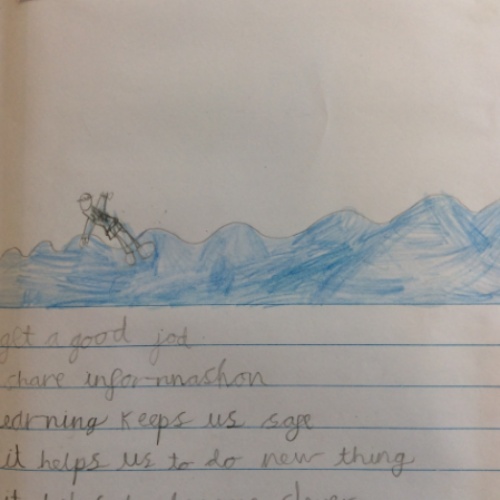 get a good jod
share infor-mnashon
earning keeps us sage
it helps us to do new thing